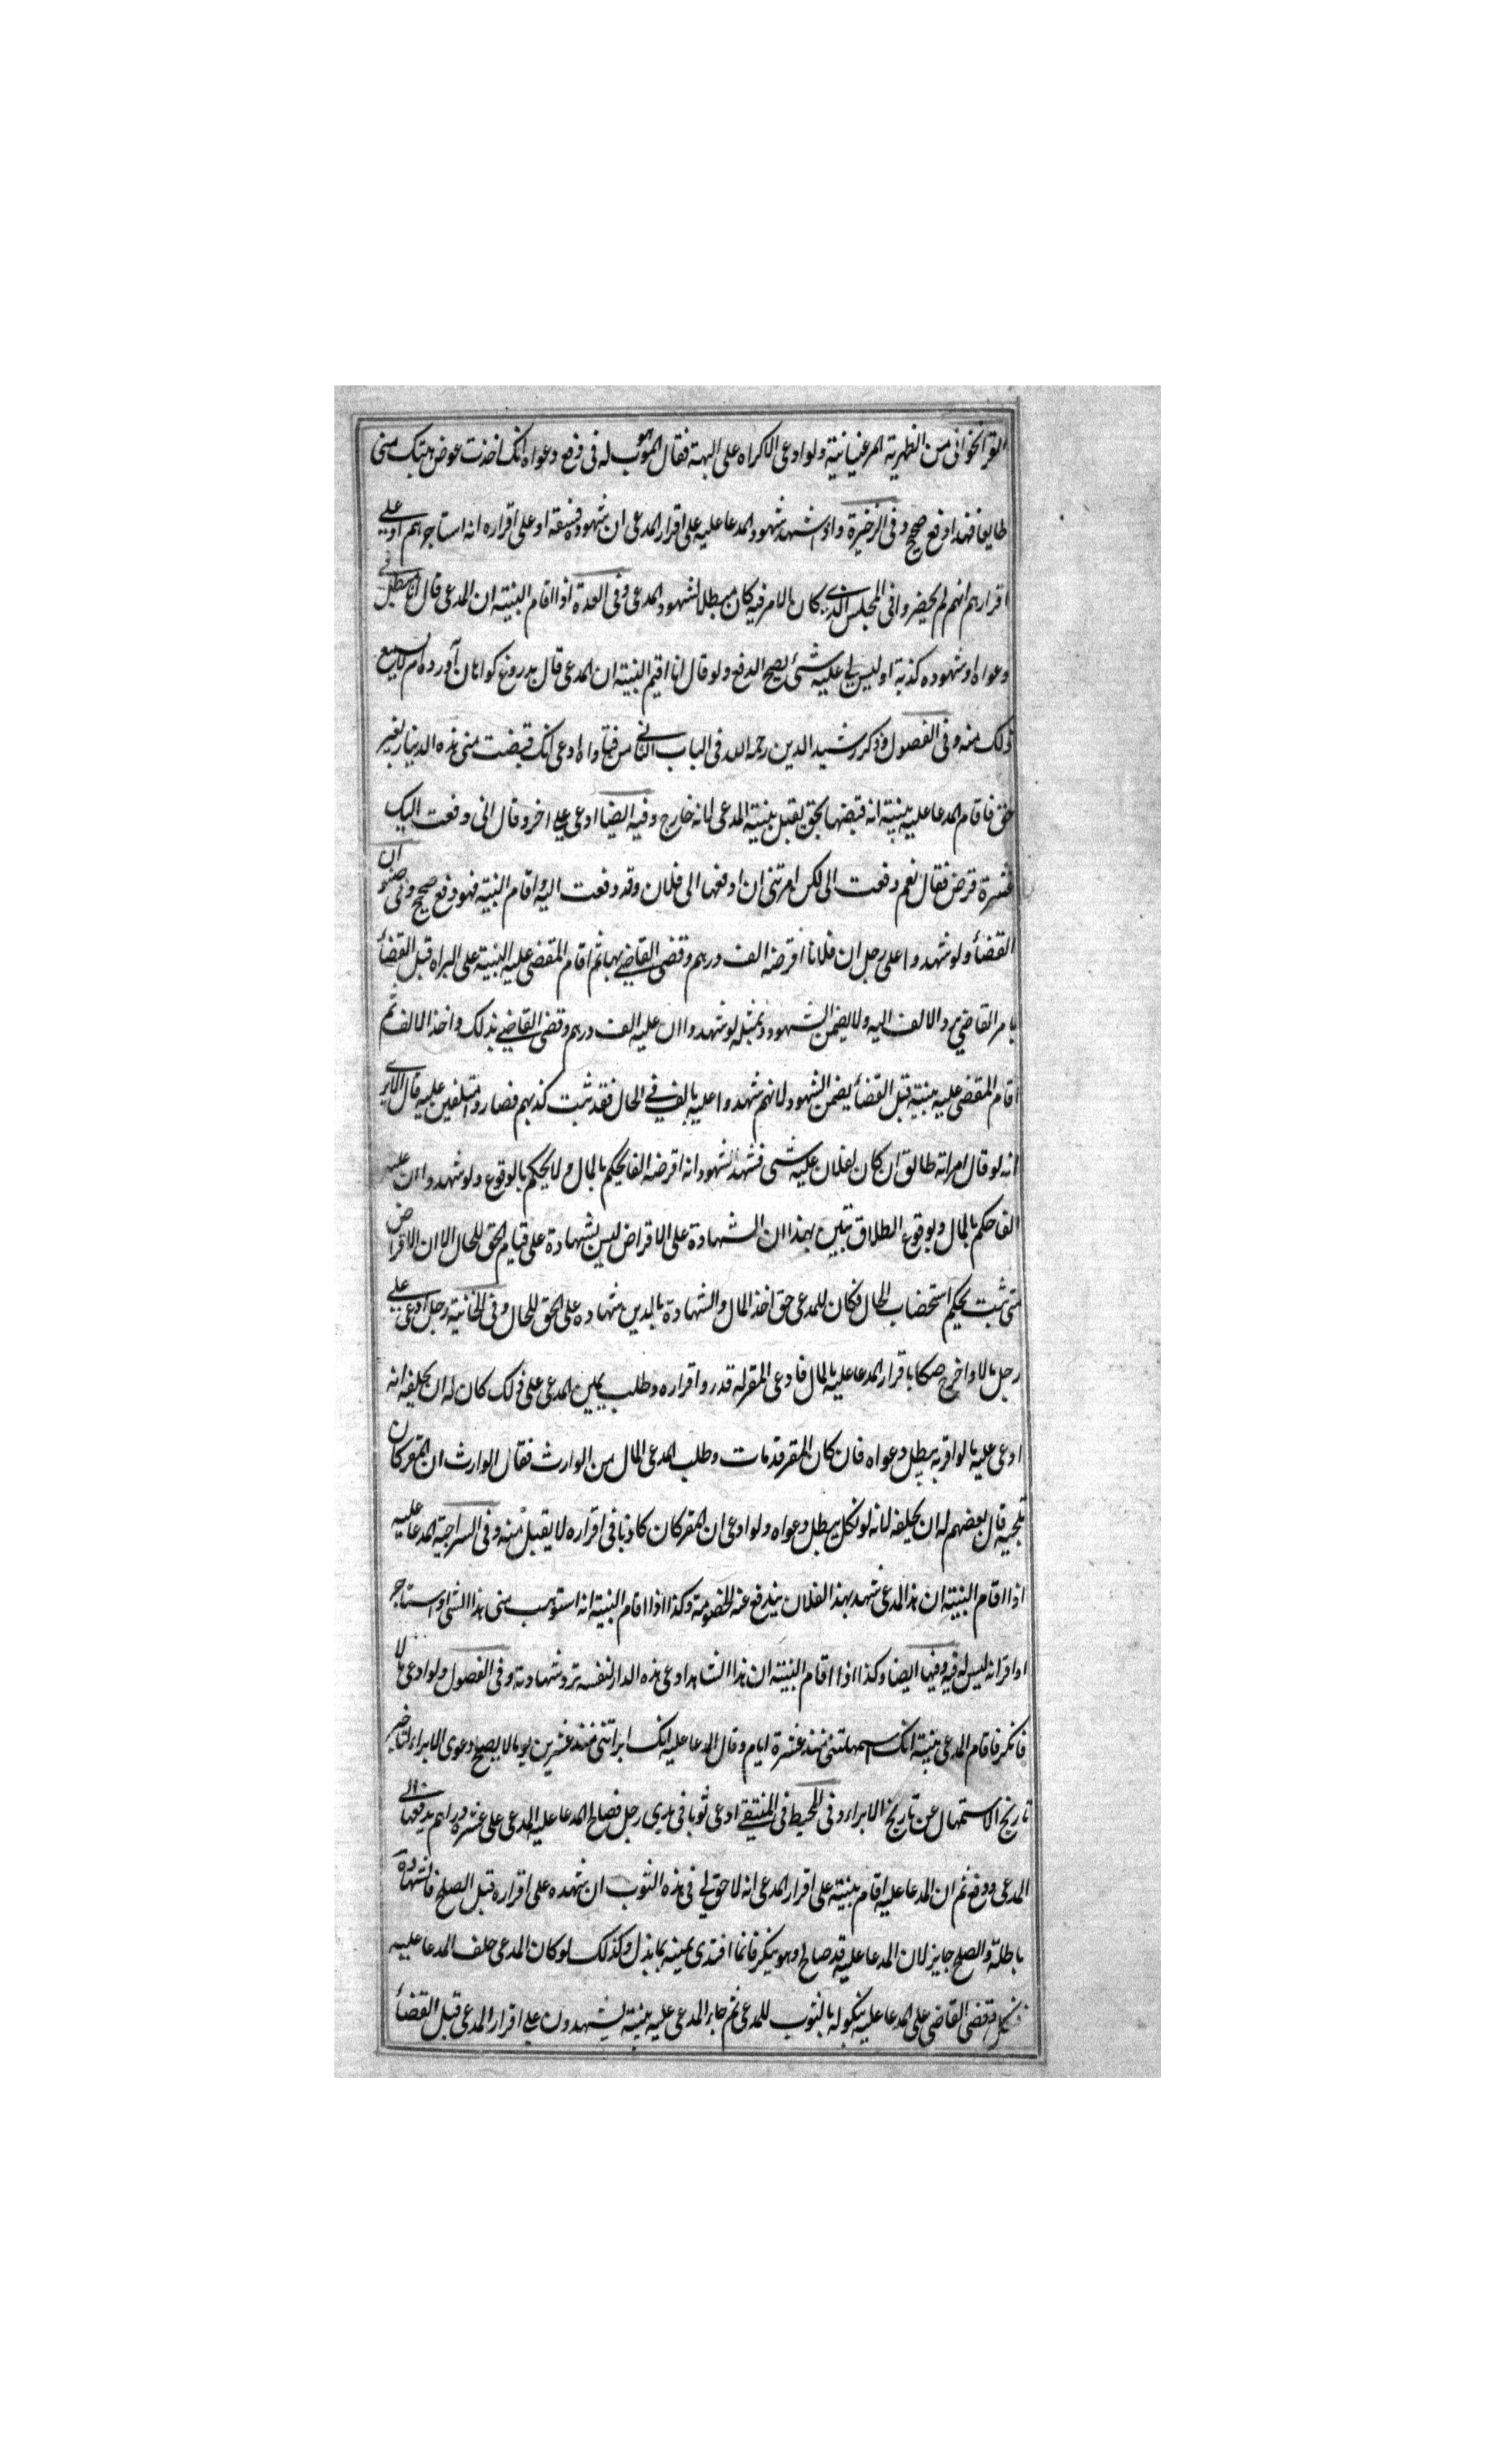 القراخوانى من الظهرية المرغينانية ولو ادعى الاكراه على الهبة فقال الموهوب له فى دفع دعواه انك اخذت عوض هبتك منى
طايعا فهذا دفع صحيح وفى الذخيرة واذا شهد شهود المدعا عليه على اقرار المدعى ان شهوده فسقة او على اقراره انه استاجرهم او على
اقرارهم انهم لم يحضروا فى المجلس الذى كان الامر فيه كان مبطلا لشهود المدعى وفى العدة اذا اقام البينة ان المدعى قال انا مبطل فى
دعواه او شهوده كذبة او ليس لى عليه شئ يصح الدفع ولو قال انا اقيم البينة ان المدعى قال بدروغ كواهان آورده ام لا يسمع
ذلك منه وفى الفصول وذكر رشيد الدين رحمه الله فى الباب الثانى من فتاواه ادعى انك قبضت منى هذه الدينار بغير
حق فاقام المدعا عليه بينة انه قبضها بحق يقبل بينة المدعى لانه خارج وفيه ايضا ادعى على اخر وقال انى دفعت اليك
عشرة قرض فقال نعم دفعت الى لكن امرتنى ان ادفعها الى فلان وقد دفعت اليه واقام البينة فهو دفع صحيح وفى صنوان
القضأ ولو شهدوا على رجل ان فلانا اقرضه الف درهم وقضى القاضى بها ثم اقام المقضى عليه البينة على البراه قبل القضأ
يامر القاضى برد الالف اليه ولا يضمن الشهود وبمثله لو شهدوا ان عليه الف درهم وقضى القاضى بذلك واخذ الالف ثم
اقام المقضى عليه بينة قبل القضأ يضمن الشهود لانهم شهدوا عليه بالف فى الحال فقد ثبت كذبهم فصاروا متلفين عليه قال الا يرى
انه لو قال امراته طالق ان كان لفلان عليه شى فشهد شهود انه اقرضه الفا يحكم بالمال ولا يحكم بالوقوع ولو شهدوا ان عليه
الفا حكم بالمال وبوقوع الطلاق تبين بهذا ان الشهادة على الاقراض ليس بشهادة على قيام الحق للحال الا ان الاقراض
متى ثبت يحكم استصحاب الحال فكان للمدعى حق اخذ المال والشهادة بالدين شهاده على الحق للحال وفى الخانية رجل ادعى على
رجل مالا واخرج صكا باقرار المدعا عليه بالمال فادعى المقر له قد رد اقراره وطلب يمين المدعى على ذلك كان له ان يحلفه انه
ادعى عليه ما لو اقر به يبطل دعواه فان كان المقر قد مات وطلب المدعى المال من الوارث فقال الوارث ان المقر كان
تلجية قال بعضهم له ان يحلفه لانه لو نكل يبطل دعواه ولو ادعى ان المقر كان كاذبا فى اقراره لا يقبل منه وفى السراجية المدعا عليه
اذا اقام البينة ان هذا المدعى شهد بهذا لفلان يندفع عنه الخصومة وكذا اذا اقام البينة انه استوهب منى هذا الشى او استاجر
او اقر انه ليس له فيه وفيها ايضا وكذا اذا اقام البينة ان هذا الشاهد ادعى هذه الدار لنفسه ترد شهادته وفى الفصول ولو ادعى مالا
فانكر فاقام المدعى بينة انك استمهلتنى منذ عشرة ايام وقال المدعا عليه انك ابراتنى منذ عشرين يوما لا يصح دعوى الابراء لتاخير
تاريخ الاستمهال عن تاريخ الابراء وفى المحيط فى المنتقى ادعى ثوبا فى يدى رجل فصالح المدعا عليه المدعى على عشرة دراهم يدفعها الى
المدعى ودفع ثم ان المدعا عليه اقام بينة على اقرار المدعى انه لا حق لى فى هذه الثوب ان شهده على اقراره قبل الصلح فالشهادة
باطلة والصلح جايز لان المدعا عليه قد صالح وهو ينكر فانما افتدى يمينه بما بذل وكذلك لو كان المدعى حلف المدعا عليه
فنكل فقضى القاضى على المدعا عليه بنكوله بالثوب للمدعى ثم جاء المدعى عليه بينة ليشهدون على اقرار المدعى قبل القضأ